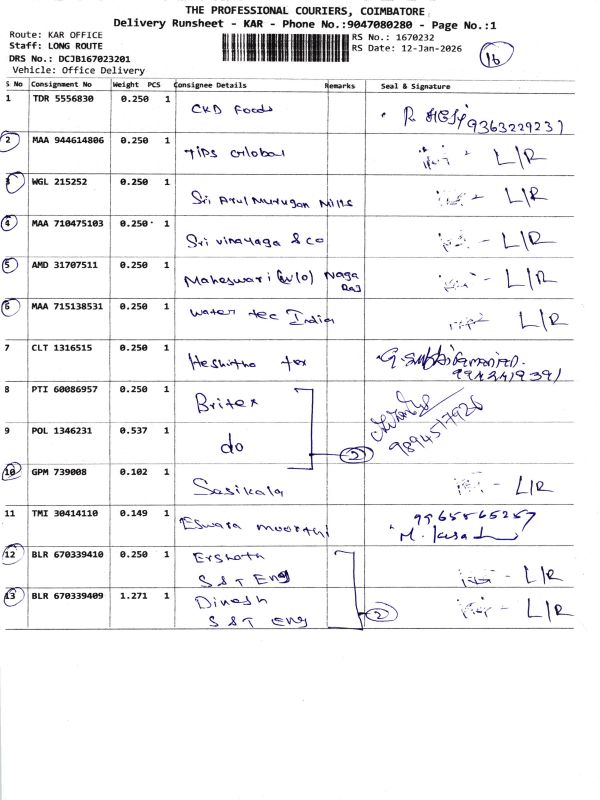 THE PROFESSIONAL COURIERS, COIMBATORE.
Delivery Runsheet - KAR - Phone No.:9047080280 - Page No.:1
Route: KAR OFFICE
RS No.: 1670232
Staff: LONG ROUTE
RS Date: 12-Jan-2026
16
DRS No.: DCJB167023201
Vehicle: Office Delivery
S No Consignment No Weight PCS Consignee Details Remarks Seal & Signature
1 TDR 5556830 0.250 1 CKD Foods R 9363229231
2 MAA 944614806 0.250 1 TIPS Global L/R
3 WGL 215252 0.250 1 Sri Arul Murugan Mills L/R
4 MAA 710475103 0.250 1 Sri vinayaga & co L/R
5 AMD 31707511 0.250 1 Maheswari (w/o) Naga Raj L/R
6 MAA 715138531 0.250 1 water tec India L/R
7 CLT 1316515 0.250 1 Heshitha tex
8 PTI 60086957 0.250 1 Britex 9894517926
9 POL 1346231 0.537 1 do 2
10 GPM 739008 0.102 1 Sasikala L/R
11 TMI 30414110 0.149 1 Eswara moorthi
12 BLR 670339410 0.250 1 S S T Eng L/R
13 BLR 670339409 1.271 1 Dinesh S S T Eng 2 L/R